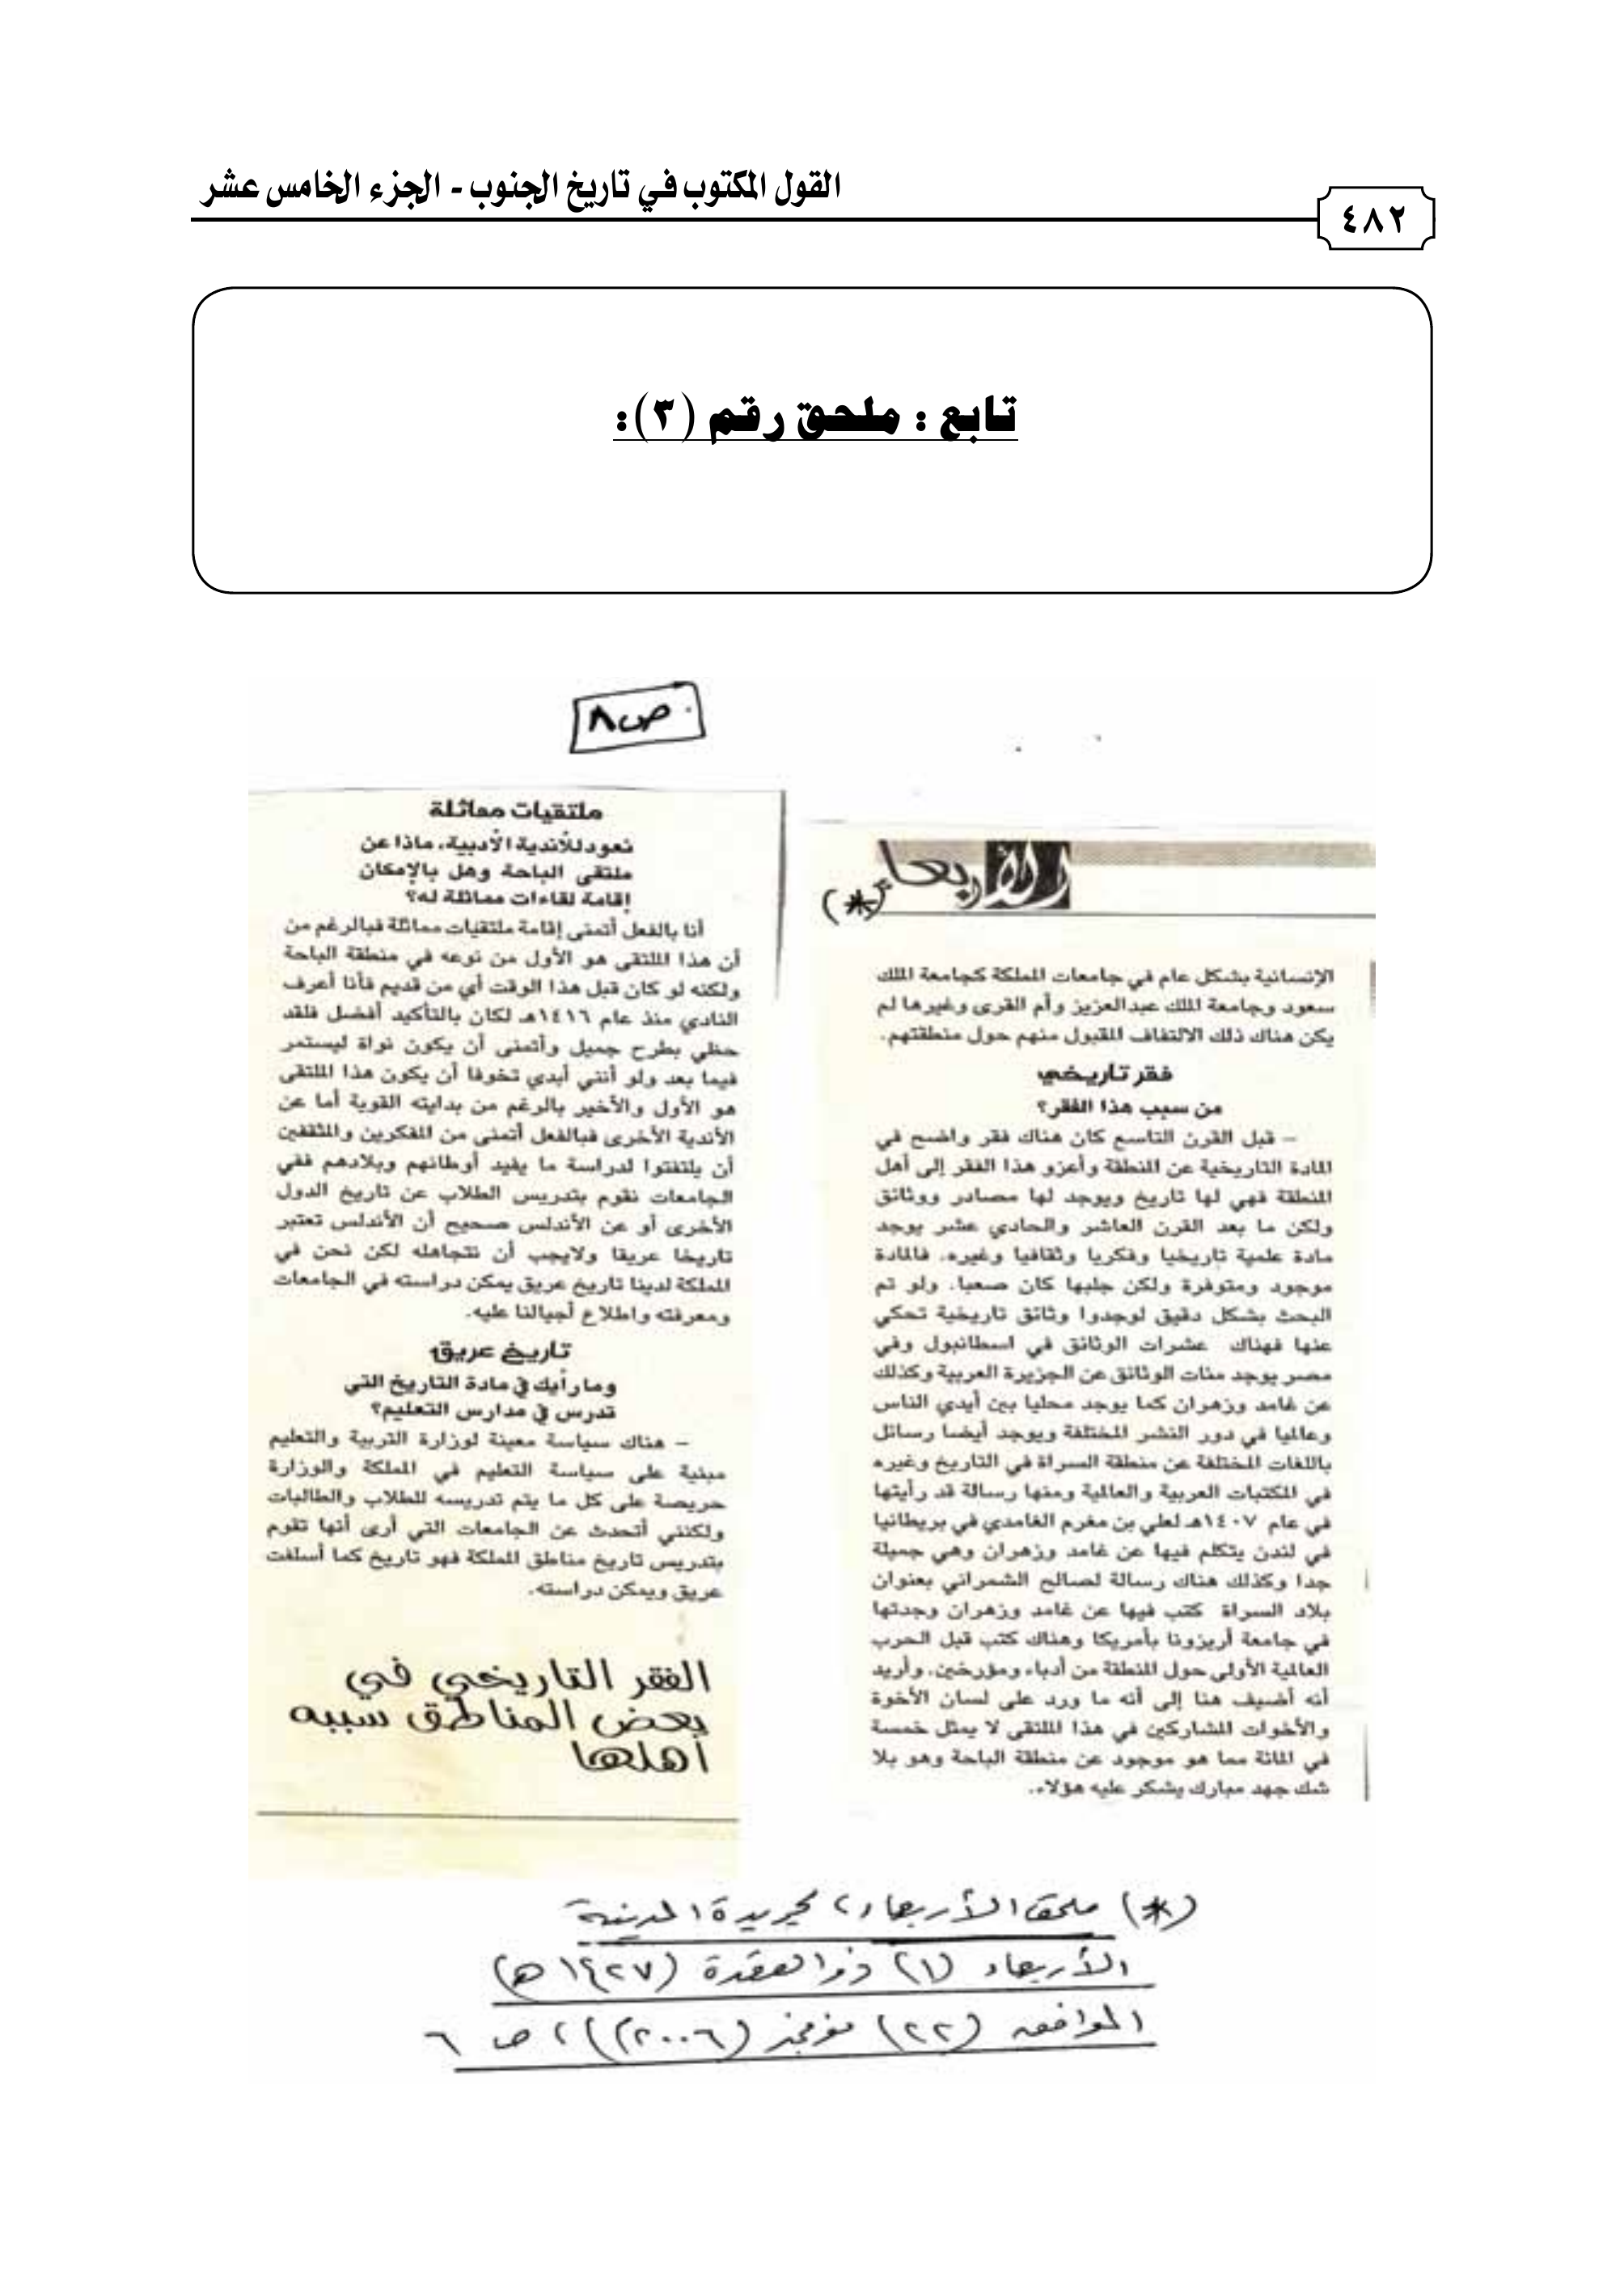 القول المكتوب في تاريخ الجنوب - الجزء الخامس عشر
٤٨٢
تابع : ملحق رقم (٣):
ص٨
الأربعاء (*)
الإنسانية بشكل عام في جامعات المملكة كجامعة الملك
سعود وجامعة الملك عبدالعزيز وأم القرى وغيرها لم
يكن هناك ذلك الالتفاف المقبول منهم حول منطقتهم.
فقر تاريخي
من سبب هذا الفقر؟
– قبل القرن التاسع كان هناك فقر واضح في
المادة التاريخية عن المنطقة وأعزو هذا الفقر إلى أهل
المنطقة فهي لها تاريخ ويوجد لها مصادر ووثائق
ولكن ما بعد القرن العاشر والحادي عشر يوجد
مادة علمية تاريخيا وفكريا وثقافيا وغيره. فالمادة
موجود ومتوفرة ولكن جلبها كان صعبا. ولو تم
البحث بشكل دقيق لوجدوا وثائق تاريخية تحكي
عنها فهناك عشرات الوثائق في اسطانبول وفي
مصر يوجد مئات الوثائق عن الجزيرة العربية وكذلك
عن غامد وزهران كما يوجد محليا بين أيدي الناس
وعالميا في دور النشر المختلفة ويوجد أيضا رسائل
باللغات المختلفة عن منطقة السراة في التاريخ وغيره
في المكتبات العربية والعالمية ومنها رسالة قد رأيتها
في عام ١٤٠٧هـ لعلي بن مغرم الغامدي في بريطانيا
في لندن يتكلم فيها عن غامد وزهران وهي جميلة
جدا وكذلك هناك رسالة لصالح الشمراني بعنوان
بلاد السراة كتب فيها عن غامد وزهران وجدتها
في جامعة أريزونا بأمريكا وهناك كتب قبل الحرب
العالمية الأولى حول المنطقة من أدباء ومؤرخين. وأريد
أنه أضيف هنا إلى أنه ما ورد على لسان الأخوة
والأخوات المشاركين في هذا الملتقى لا يمثل خمسة
في المائة مما هو موجود عن منطقة الباحة وهو بلا
شك جهد مبارك يشكر عليه هؤلاء.
ملتقيات مماثلة
نعود للأندية الأدبية، ماذا عن
ملتقى الباحة وهل بالإمكان
إقامة لقاءات مماثلة له؟
أنا بالفعل أتمنى إقامة ملتقيات مماثلة فبالرغم من
أن هذا الملتقى هو الأول من نوعه في منطقة الباحة
ولكنه لو كان قبل هذا الوقت أي من قديم فأنا أعرف
النادي منذ عام ١٤١٦هـ لكان بالتأكيد أفضل فلقد
حظي بطرح جميل وأتمنى أن يكون نواة ليستمر
فيما بعد ولو أنني أبدي تخوفا أن يكون هذا الملتقى
هو الأول والأخير بالرغم من بدايته القوية أما عن
الأندية الأخرى فبالفعل أتمنى من المفكرين والمثقفين
أن يلتفتوا لدراسة ما يفيد أوطانهم وبلادهم ففي
الجامعات نقوم بتدريس الطلاب عن تاريخ الدول
الأخرى أو عن الأندلس صحيح أن الأندلس تعتبر
تاريخا عريقا ولايجب أن نتجاهله لكن نحن في
المملكة لدينا تاريخ عريق يمكن دراسته في الجامعات
ومعرفته واطلاع أجيالنا عليه.
تاريخ عريق
وما رأيك في مادة التاريخ التي
تدرس في مدارس التعليم؟
– هناك سياسة معينة لوزارة التربية والتعليم
مبنية على سياسة التعليم في المملكة والوزارة
حريصة على كل ما يتم تدريسه للطلاب والطالبات
ولكنني أتحدث عن الجامعات التي أرى أنها تقوم
بتدريس تاريخ مناطق المملكة فهو تاريخ كما أسلفت
عريق ويمكن دراسته.
الفقر التاريخي في
بعض المناطق سببه
أهلها
(*) ملحق الأربعاء، بجريدة المدينة
الأربعاء (١) ذو القعدة (١٤٢٧هـ)
الموافق (٢٢) نوفمبر (٢٠٠٦م)، ص ٦